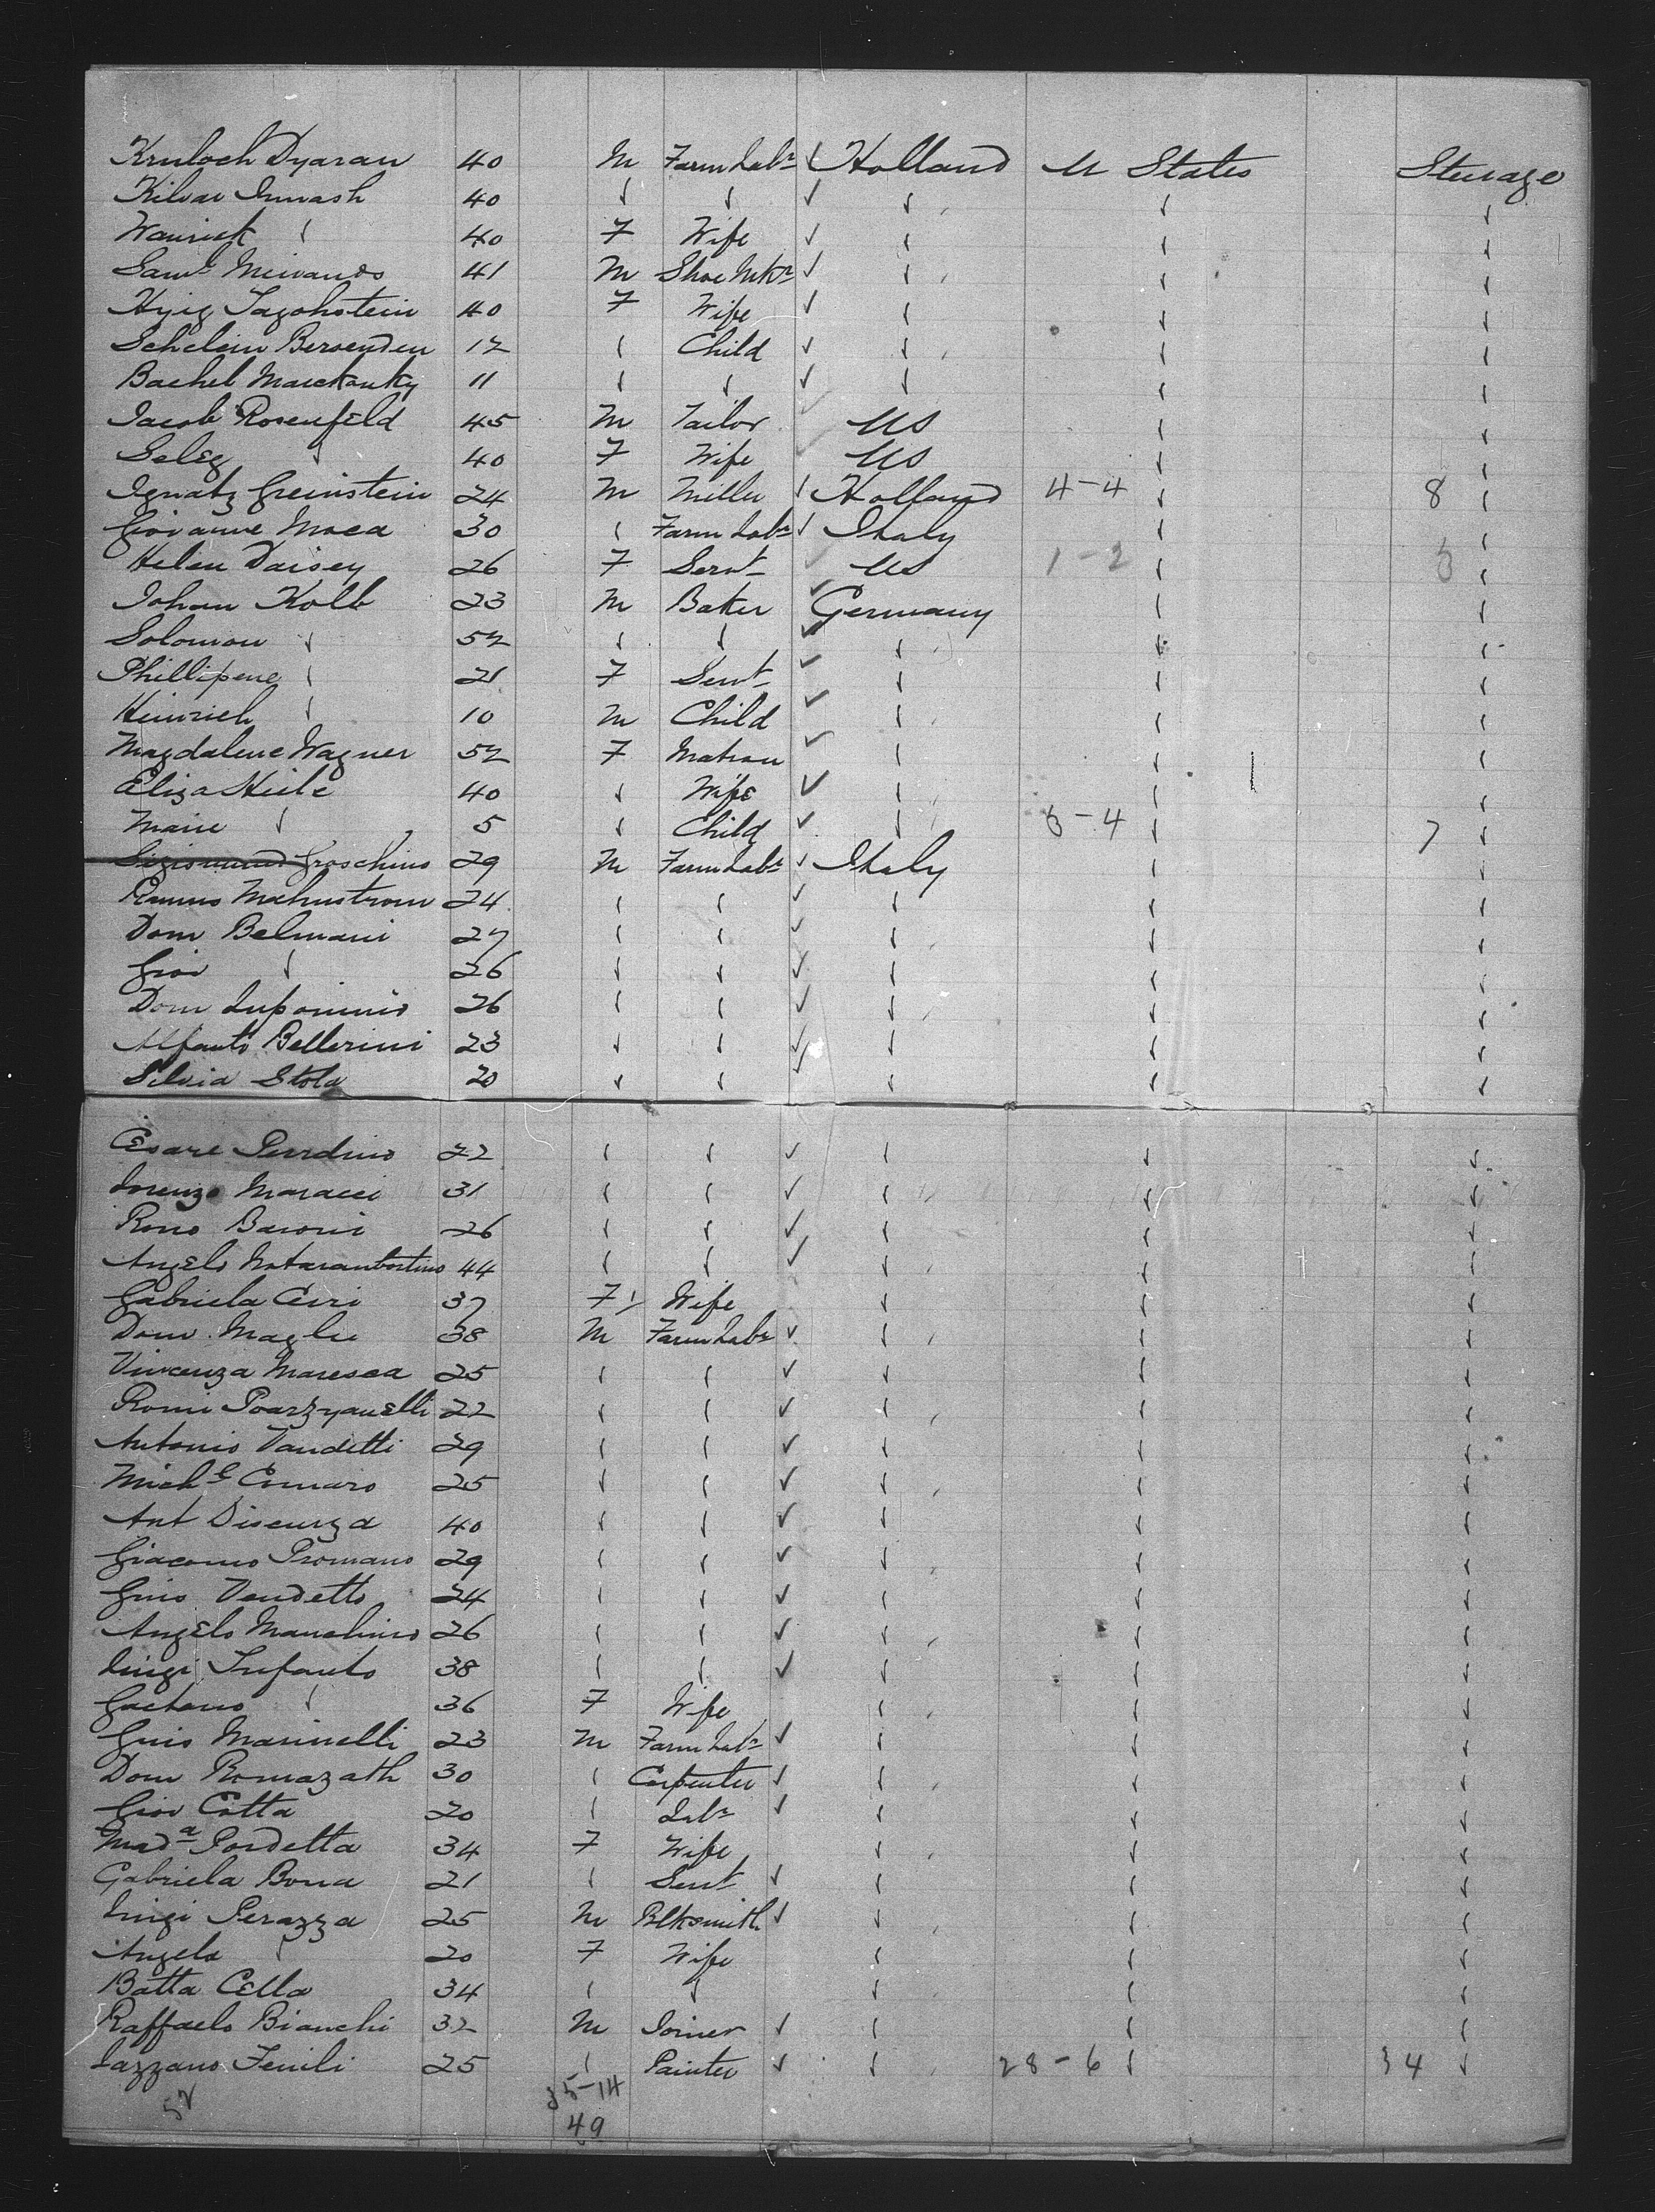 Kruloch Dyaran 40 M Farm Labr ✓ Holland U States Steerage
Kilvar Inwash 40 " " ✓ " " "
Wanrick " 40 F Wife ✓ " " "
Saml Meivands 41 M Shoe Mkr ✓ " " "
Hyig Sagohstein 40 F Wife ✓ " " "
Schelein Bersenden 12 " Child ✓ " " "
Bachel Marckanky 11 " " ✓ " " "
Jacob Rosenfeld 45 M Tailor ✓ US " "
Seleg " 40 F Wife ✓ US " "
Ignatz Greinstein 24 M Miller ✓ Holland 4-4 " 8 "
Giovanne Moca 30 " Farm Labr ✓ Italy " "
Helen Daisey 26 F Servt ✓ US 1-2 " 3 "
Johan Kolb 23 M Baker ✓ Germany " "
Solomon " 52 " " ✓ " " "
Phillipene " 21 F Servt ✓ " " "
Heinrich " 10 M Child ✓ " " "
Magdalene Wagner 52 F Matron ✓ " " "
Eliza Heile 40 " Wife ✓ " " "
Marie " 5 " Child ✓ " 3-4 " 7 "
Sigismund Groschino 29 M Farm Labr ✓ Italy " "
Ramus Mahnstrom 24 " " ✓ " " "
Dom Belmani 27 " " ✓ " " "
Giov " 26 " " ✓ " " "
Dom Luponinio 26 " " ✓ " " "
Alfanto Bellerini 23 " " ✓ " " "
Silvia Stola 20 " " ✓ " " "
Cesare Perdino 22 " " ✓ " " "
Lorenzo Maracci 31 " " ✓ " " "
Rono Baroni 26 " " ✓ " " "
Angelo Notarantostino 44 " " ✓ " " "
Gabriela Ceri 37 F Wife " " "
Dom Maglie 38 M Farm Labr ✓ " " "
Vincenza Maresca 25 " " ✓ " " "
Romi Poarzyanelli 22 " " ✓ " " "
Antonio Vandetti 29 " " ✓ " " "
Michl Comaro 25 " " ✓ " " "
Ant Disenza 40 " " ✓ " " "
Giacomo Promano 29 " " ✓ " " "
Guis Vendetto 24 " " ✓ " " "
Angelo Manchino 26 " " ✓ " " "
Luigi Infanto 38 " " ✓ " " "
Gaetano " 36 F Wife " " "
Guis Marinelli 23 M Farm Labr ✓ " " "
Dom Romazath 30 " Carpenter ✓ " " "
Giov Cotta 20 " Labr ✓ " " "
Mada Pordetta 34 F Wife " " "
Gabriela Bona 21 " Servt ✓ " " "
Luigi Perazza 25 M Blksmith ✓ " " "
Angela " 20 F Wife " " "
Batta Cella 34 " " " " "
Raffaelo Bianchi 32 M Joiner ✓ " " "
Lazzano Fenili 25 " Painter ✓ " 28-6 " 34 "
52 35-14
49